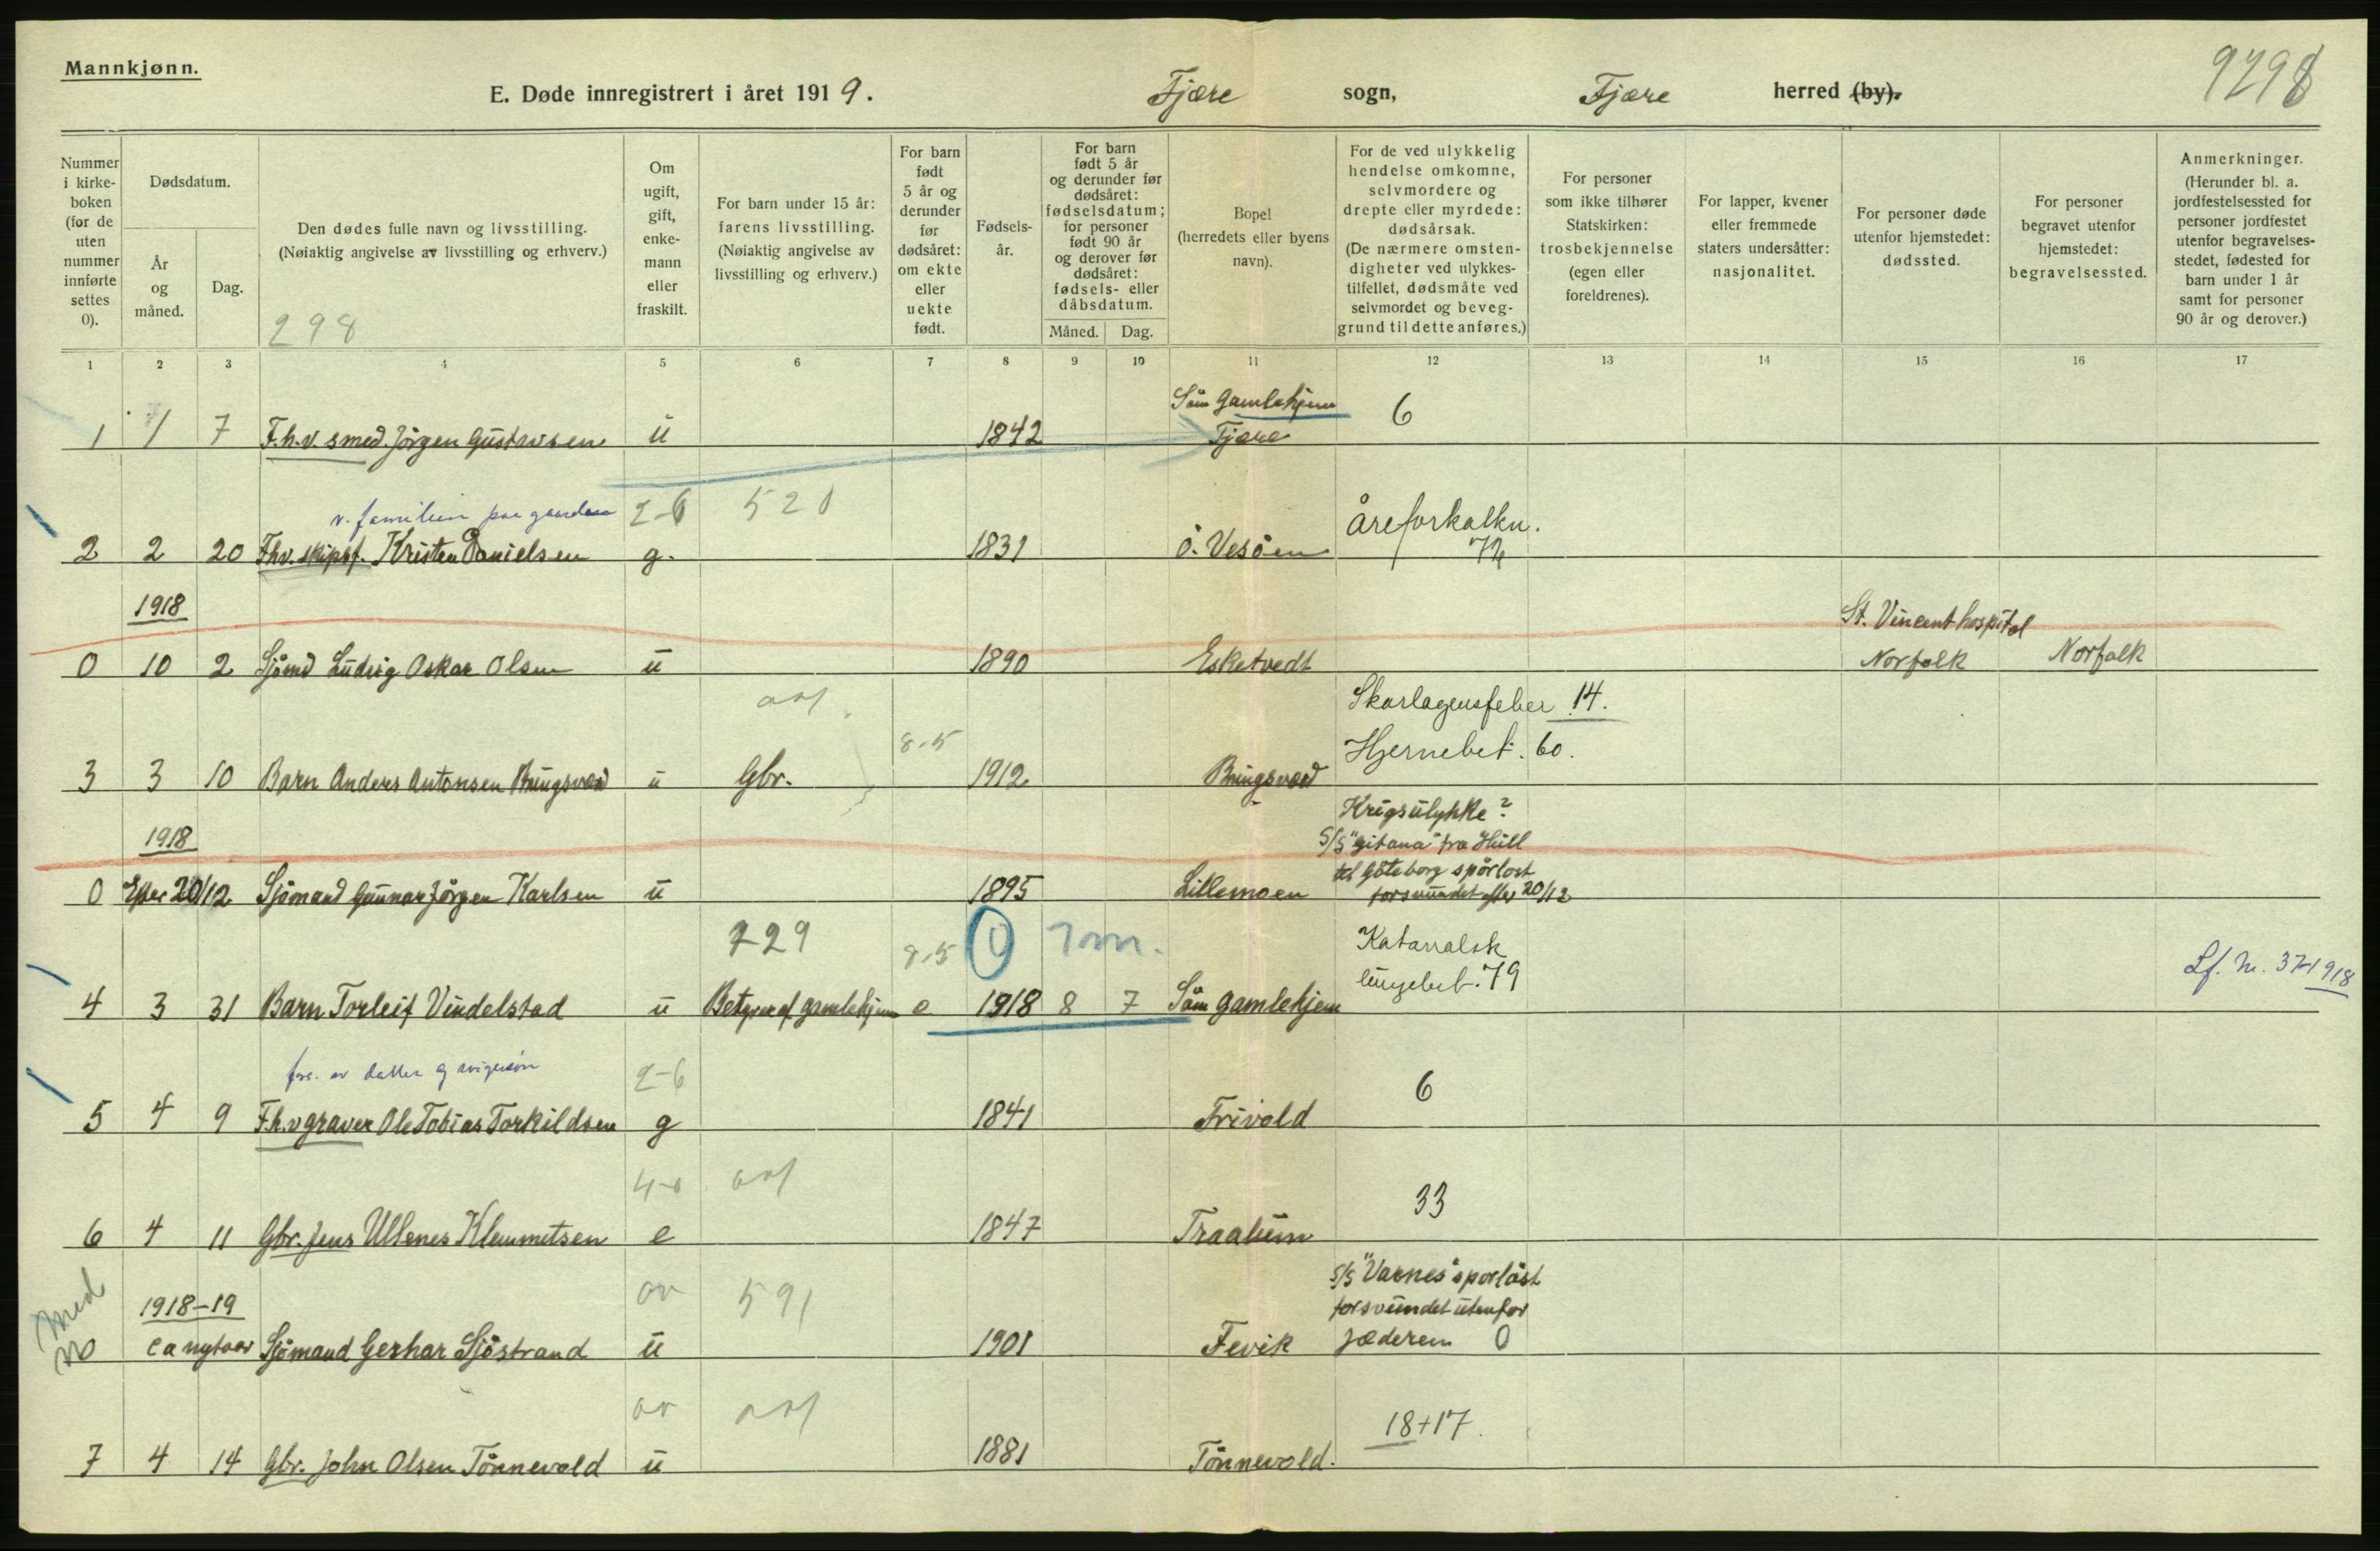 Mannkjønn.
E. Døde innregistrert i året 1919. Fjære sogn, Fjære herred (by).
9298
Nummer i kirke- boken (for de uten nummer innførte settes 0).
Dødsdatum.
År og måned.
Dag.
Den dødes fulle navn og livsstilling.
(Nøiaktig angivelse av livsstilling og erhverv.)
298
Om ugift, gift, enke- mann eller fraskilt.
For barn under 15 år: farens livsstilling. (Nøiaktig angivelse av livsstilling og erhverv.)
For barn født 5 år og derunder før dødsåret: om ekte eller uekte født.
Fødsels- år.
For barn født 5 år og derunder før dødsåret: fødselsdatum; for personer født 90 år og derover før dødsåret: fødsels- eller dåbsdatum.
Måned. Dag.
Bopel (herredets eller byens navn).
For de ved ulykkelig hendelse omkomne, selvmordere og drepte eller myrdede: dødsårsak. (De nærmere omsten- digheter ved ulykkes- tilfellet, dødsmåte ved selvmordet og beveg- grund til dette anføres.)
For personer som ikke tilhører Statskirken: trosbekjennelse (egen eller foreldrenes).
For lapper, kvener eller fremmede staters undersåtter: nasjonalitet.
For personer døde utenfor hjemstedet: dødssted.
For personer begravet utenfor hjemstedet: begravelsessted.
Anmerkninger. (Herunder bl. a. jordfestelsessted for personer jordfestet utenfor begravelses- stedet, fødested for barn under 1 år samt for personer 90 år og derover.)
1 2 3 4 5 6 7 8 9 10 11 12 13 14 15 16 17
Söm Gamlehjem 6
1 1 7 F.h.v. smed. Jörgen Gustavsen u 1842 Fjære
v. familien paa gaarden 2-6 520 Åreforkalkn.
2 2 20 Fhv. skipsf. Kristen Danielsen g. 1831 Ö. Vesöen 72
1918 St. Vincent hospital
0 10 2 Sjömd Ludvig Oskar Olsen u 1890 Esketvedt Norfolk Norfolk
Skarlagensfeber 14.
8-5 Hjernebet. 60.
3 3 10 Barn Anders Antonsen Bringsværd u Gbr. 1912 Bringsværd
1918 Krigsulykke?
S/S "Gitana" fra Hull
til Göteborg spörlost
0 Efter 20/12 Sjömand Gunnar Jörgen Karlsen u 1895 Lillemoen forsvundet efter 20/12
729 8-5 0 Katarralsk
lungebet. 79 Lf. Nr. 37-1918
4 3 31 Barn Torleif Vindelstad u Bestyrer af gamlehjem e 1918 8 7 Söm Gamlehjem
fors. av datter og svigersön 2-6 6
5 4 9 F.h.v graver Ole Tobias Torkildsen g 1841 Frivold
33
6 4 11 Gbr. Jens Ullenes Klemmetsen e 1847 Traalum
med
1918-19 591 S/S "Varnes" sporlöst
forsvundet utenfor
no ca nytaar Sjömand Gerhar Sjöstrand u 1901 Fevik Jæderen 0
18+17.
7 4 14 Gbr. John Olsen Tönnevold u 1881 Tönnevold.